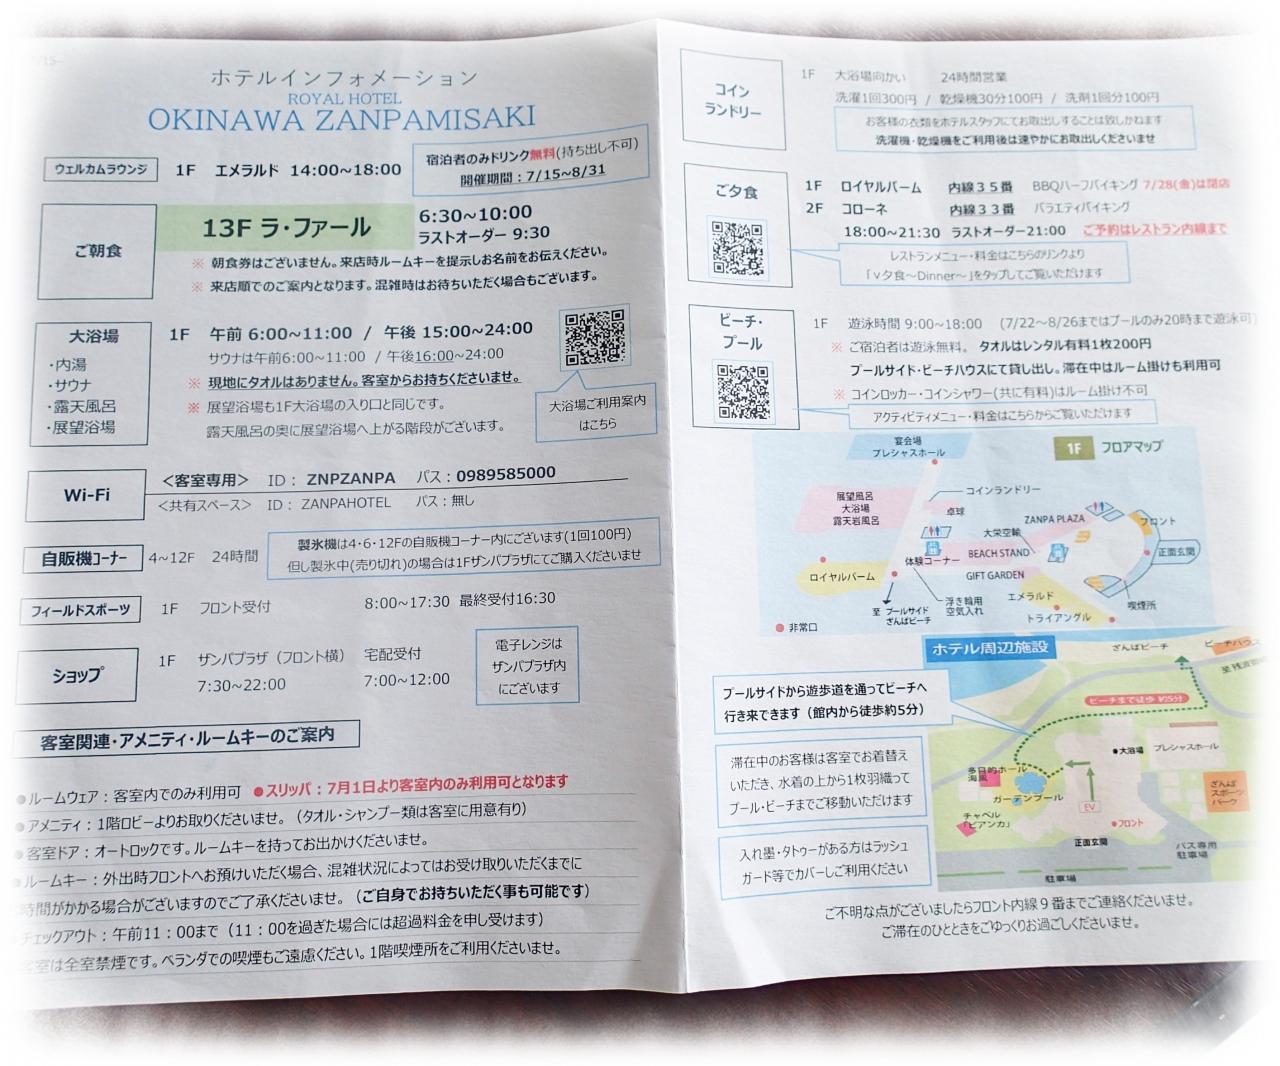 ホテルインフォメーション
ROYAL HOTEL
OKINAWA ZANPAMISAKI
ウェルカムラウンジ
1F エメラルド 14:00~18:00
宿泊者のみドリンク無料(持ち出し不可)
開催期間：7/15~8/31
ご朝食
13F ラ・ファール
6:30~10:00
ラストオーダー 9:30
※ 朝食券はございません。来店時ルームキーを提示しお名前をお伝えください。
※ 来店順でのご案内となります。混雑時はお待ちいただく場合もございます。
大浴場
・内湯
・サウナ
・露天風呂
・展望浴場
1F 午前 6:00~11:00 / 午後 15:00~24:00
サウナは午前6:00~11:00 / 午後16:00~24:00
※ 現地にタオルはありません。客室からお持ちくださいませ。
※ 展望浴場も1F大浴場の入り口と同じです。
露天風呂の奥に展望浴場へ上がる階段がございます。
大浴場ご利用案内
はこちら
Wi-Fi
＜客室専用＞ ID： ZNPZANPA パス：0989585000
＜共有スペース＞ ID： ZANPAHOTEL パス：無し
自販機コーナー
4~12F 24時間
製氷機は4・6・12Fの自販機コーナー内にございます(1回100円)
但し製氷中(売り切れ)の場合は1Fザンパプラザにてご購入くださいませ
フィールドスポーツ
1F フロント受付 8:00~17:30 最終受付16:30
ショップ
1F ザンパプラザ（フロント横） 宅配受付
7:30~22:00 7:00~12:00
電子レンジは
ザンパプラザ内
にございます
客室関連・アメニティ・ルームキーのご案内
●ルームウェア：客室内でのみ利用可 ●スリッパ：7月1日より客室内のみ利用可となります
●アメニティ：1階ロビーよりお取りくださいませ。（タオル・シャンプー類は客室に用意有り）
●客室ドア：オートロックです。ルームキーを持ってお出かけくださいませ。
●ルームキー：外出時フロントへお預けいただく場合、混雑状況によってはお受け取りいただくまでに
時間がかかる場合がございますのでご了承くださいませ。（ご自身でお持ちいただく事も可能です）
チェックアウト：午前11：00まで（11：00を過ぎた場合には超過料金を申し受けます）
客室は全室禁煙です。ベランダでの喫煙もご遠慮ください。1階喫煙所をご利用くださいませ。
コイン
ランドリー
1F 大浴場向かい 24時間営業
洗濯1回300円 / 乾燥機30分100円 / 洗剤1回分100円
お客様の衣類をホテルスタッフにてお取出しすることは致しかねます
洗濯機・乾燥機をご利用後は速やかにお取出しくださいませ
ご夕食
1F ロイヤルバーム 内線３５番 BBQハーフバイキング 7/28(金)は閉店
2F コローネ 内線３３番 バラエティバイキング
18:00~21:30 ラストオーダー21:00 ご予約はレストラン内線まで
レストランメニュー・料金はこちらのリンクより
「∨夕食～Dinner～」をタップしてご覧いただけます
ビーチ・
プール
1F 遊泳時間 9:00~18:00 (7/22～8/26まではプールのみ20時まで遊泳可)
※ ご宿泊者は遊泳無料。 タオルはレンタル有料1枚200円
プールサイド・ビーチハウスにて貸し出し。滞在中はルーム掛けも利用可
※ コインロッカー・コインシャワー(共に有料)はルーム掛け不可
アクティビティメニュー・料金はこちらからご覧いただけます
1F フロアマップ
宴会場
プレシャスホール
コインランドリー
展望風呂
大浴場
露天岩風呂
卓球
ZANPA PLAZA
大栄空輸
フロント
BEACH STAND
正面玄関
体験コーナー
ロイヤルバーム
GIFT GARDEN
エメラルド
浮き輪用
空気入れ
喫煙所
至 プールサイド
ざんぱビーチ
トライアングル
非常口
ホテル周辺施設
ざんぱビーチ
ビーチハウス
ビーチまで徒歩 約5分
プールサイドから遊歩道を通ってビーチへ
行き来できます（館内から徒歩約5分）
滞在中のお客様は客室でお着替え
いただき、水着の上から1枚羽織って
プール・ビーチまでご移動いただけます
入れ墨・タトゥーがある方はラッシュ
ガード等でカバーしご利用ください
●大浴場
プレシャスホール
多目的ホール
海風
ガーデンプール
チャペル
「ビアンカ」
EV
●フロント
正面玄関
ざんぱ
スポーツ
パーク
バス専用
駐車場
駐車場
ご不明な点がございましたらフロント内線９番までご連絡くださいませ。
ご滞在のひとときをごゆっくりお過ごしくださいませ。